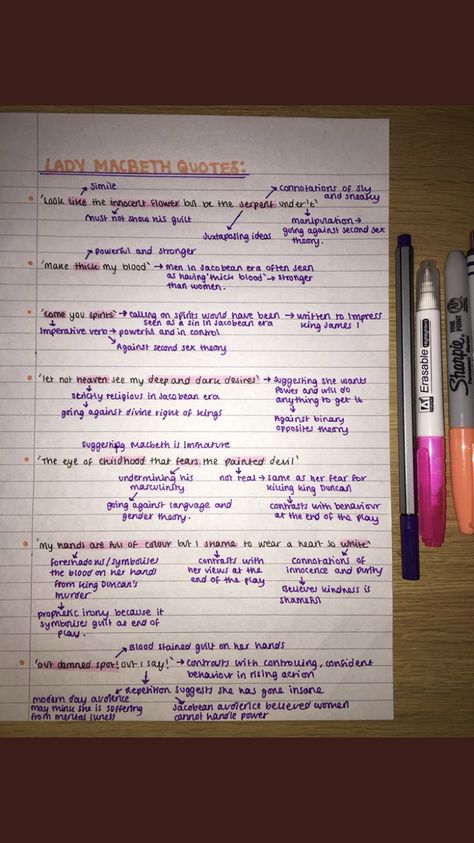 LADY MACBETH QUOTES:
simile
connotations of sly and sneaky
'Look like the innocent flower but be the serpent under't'
must not show his guilt
juxtaposing ideas
manipulation → going against second sex theory.
powerful and stronger
'make thick my blood' → men in Jacobean era often seen as having 'thick blood' → stronger than women.
'come you spirits' → calling on spirits would have been seen as a sin in Jacobean era → written to impress King James I
Imperative verb → powerful and in control
Against second sex theory
'let not heaven see my deep and dark desires' → suggesting she wants power and will do anything to get is
strictly religious in Jacobean era
going against divine right of kings
Against binary opposites theory
suggesting Macbeth is immature
'The eye of childhood that fears the painted devil'
undermining his masculinity
not real → same as her fear for killing King Duncan
going against language and gender theory.
contrasts with behaviour at the end of the play
'my hands are full of colour but I shame to wear a heart so white'
foreshadows/symbolises the blood on her hands from King Duncan's murder
contrasts with her views at the end of the play
connotations of innocence and purity
Believes kindness is shameful
prophetic irony because it symbolises guilt at end of play.
Blood stained guilt on her hands
'out damned spot! out I say!' → contrasts with controlling, confident behaviour in rising action
Repetition suggests she has gone insane
modern day audience may think she is suffering from mental illness
Jacobean audience believed women cannot handle power
Erasable
Sharpie
FINE POINT